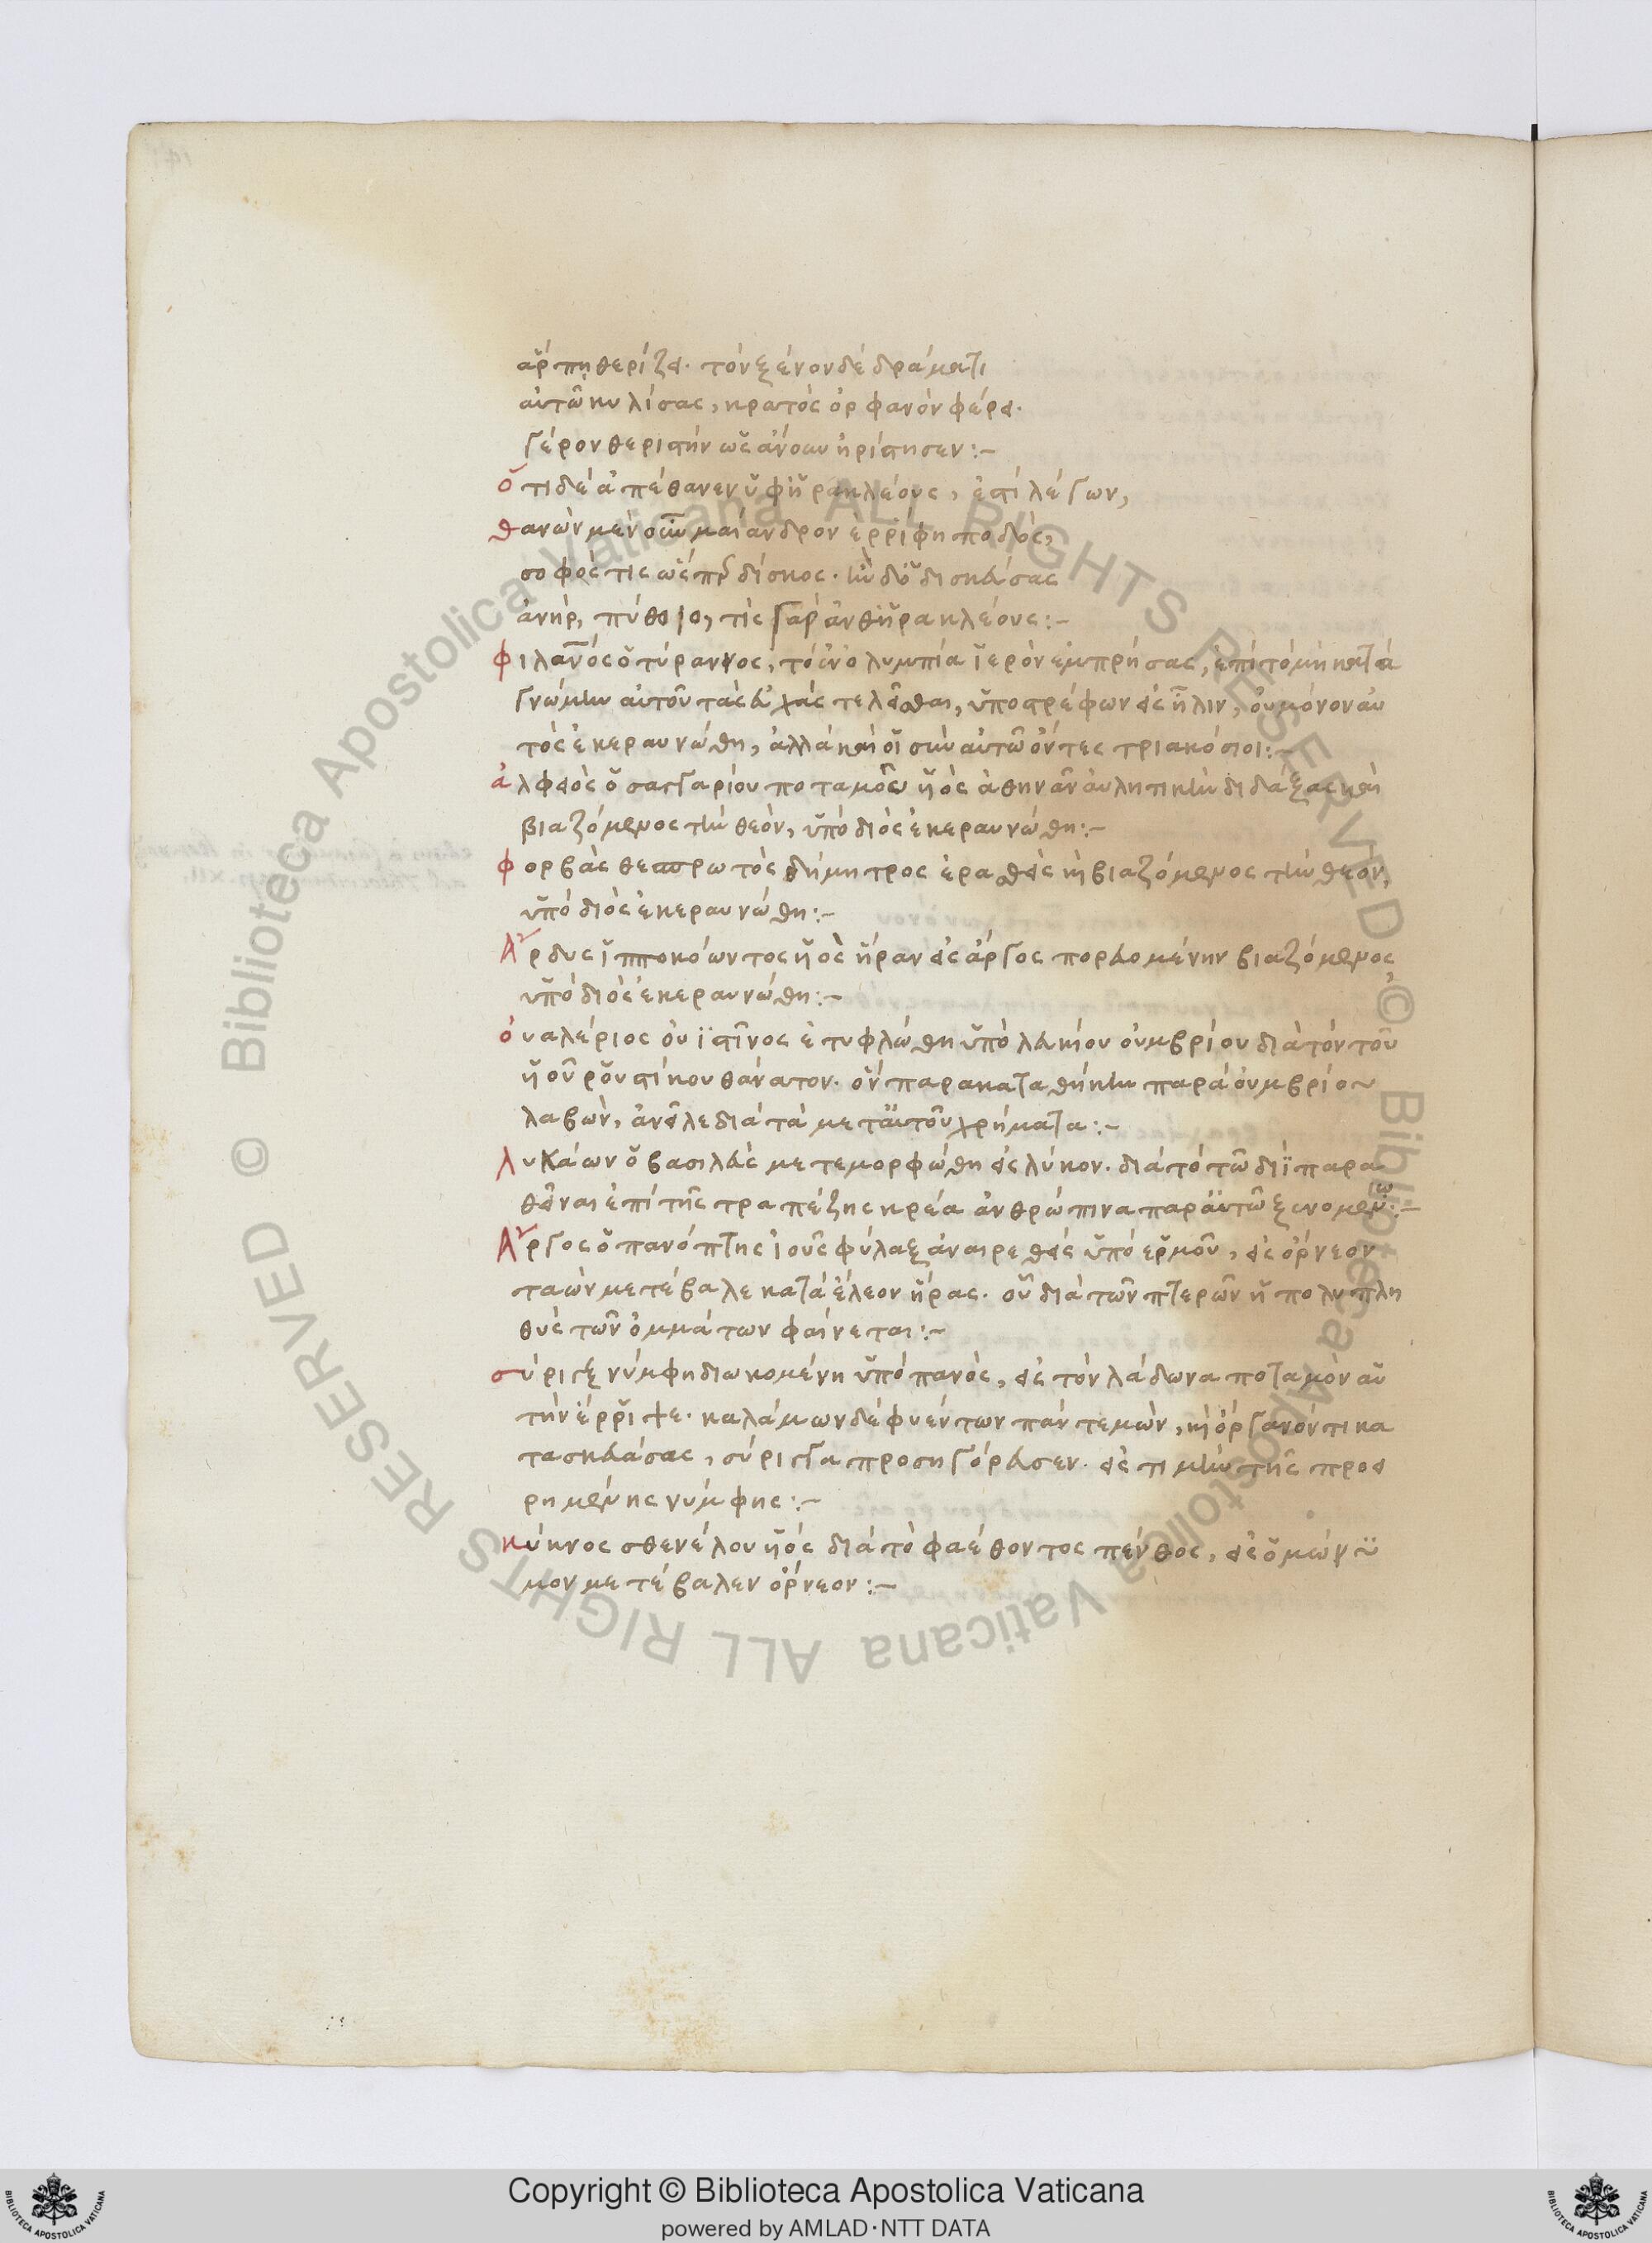 ἅρπη θερίζει. τὸν ξένον δὲ δράγματι
αὐτῶ κυλίσας, κρατὸς ὀρφανὸν φέρει.
γέρον θεριστὴν ὡς ἄνουν ἠρίστησεν:–
ὅτι δὲ ἀπέθανεν ὑφ' ἡρακλέους, ἐστὶ λέγων,
θανὼν μὲν οὖν μαίανδρον ἐρρίφη ποδὸς,
σοφός τις ὥσπερ δίσκος. ἦν δ' ὁ δισκεύσας
ἀνὴρ, πύθοιο, τίς γὰρ ἀνθ' ἡρακλέους:–
ὁ τύραννος, τὸ ἐν ὀλυμπία ἱερὸν ἐμπρήσας, ἐπὶ τὸ μὴ κατὰ
γνώμην αὐτοῦ τὰς εὐχὰς τελεῖσθαι, ὑποστρέφων εἰς ἦλιν, οὐ μόνον αὐ
τὸς ἐκεραυνώθη, ἀλλὰ καὶ οἱ σὺν αὐτῶ ὄντες τριακόσιοι:–
ἀλφειὸς ὁ σαγγαρίου ποταμοῦ υἱὸς ἀθηνᾶν αὐλητικὴν διδάξας καὶ
βιαζόμενος τὴν θεὸν, ὑπὸ διὸς ἐκεραυνώθη:–
φορβὰς θεσπρωτὸς δήμητρος ἐρασθεὶς καὶ βιαζόμενος τὴν θεὸν,
ὑπὸ διὸς ἐκεραυνώθη:–
Ἄρδυς ἱπποκόωντος υἱὸς ἥραν εἰς ἄργος πορευομένην βιαζόμενος
ὑπὸ διὸς ἐκεραυνώθη:–
ὀυαλέριος ἐτυφλώθη ὑπὸ λευκίου οὐμβρίου διὰ τὸν τοῦ
υἱοῦ ῥουστίκου θάνατον. ὃν παρακαταθήκην παρὰ ὀυμβρίου
λαβὼν, ἀνεῖλε διὰ τὰ μετ' αὐτοῦ χρήματα:–
λυκάων ὁ βασιλεὺς μετεμορφώθη εἰς λύκον. διὰ τὸ τῶ διῒ παρα
θεῖναι ἐπὶ τῆς τραπέζης κρέα ἀνθρώπινα παρ' αὐτῶ ξενουμένω:–
Ἄργος ὁ πανόπτης ἰοῦς φύλαξ ἀναιρεθεὶς ὑπὸ ἑρμοῦ, εἰς ὄρνεον
ταὼν μετέβαλε κατὰ ἔλεον ἥρας. οὗ διὰ τῶν πτερῶν ἡ πολυπλη
θὺς τῶν ὀμμάτων φαίνεται:–
σύριγξ νύμφη διωκομένη ὑπὸ πανὸς, εἰς τὸν λάδωνα ποταμὸν αὑ
τὴν ἔρριψε. καλάμων δὲ φυέντων πὰν τεμὼν, καὶ ὄργανόν τι κα
τασκευάσας, σύριγγα προσηγόρευσεν. εἰς τιμὴν τῆς προει
ρημένης νύμφης:–
κύκνος σθενέλου υἱὸς διὰ τὸ φαέθοντος πένθος, εἰς ὁμώνυ
μον μετέβαλεν ὄρνεον:–
© Biblioteca Apostolica Vaticana ALL RIGHTS RESERVED © Biblioteca Apostolica Vaticana ALL RIGHTS RESERVED
Copyright © Biblioteca Apostolica Vaticana
powered by AMLAD·NTT DATA
BIBLIOTECA APOSTOLICA VATICANA
BIBLIOTECA APOSTOLICA VATICANA